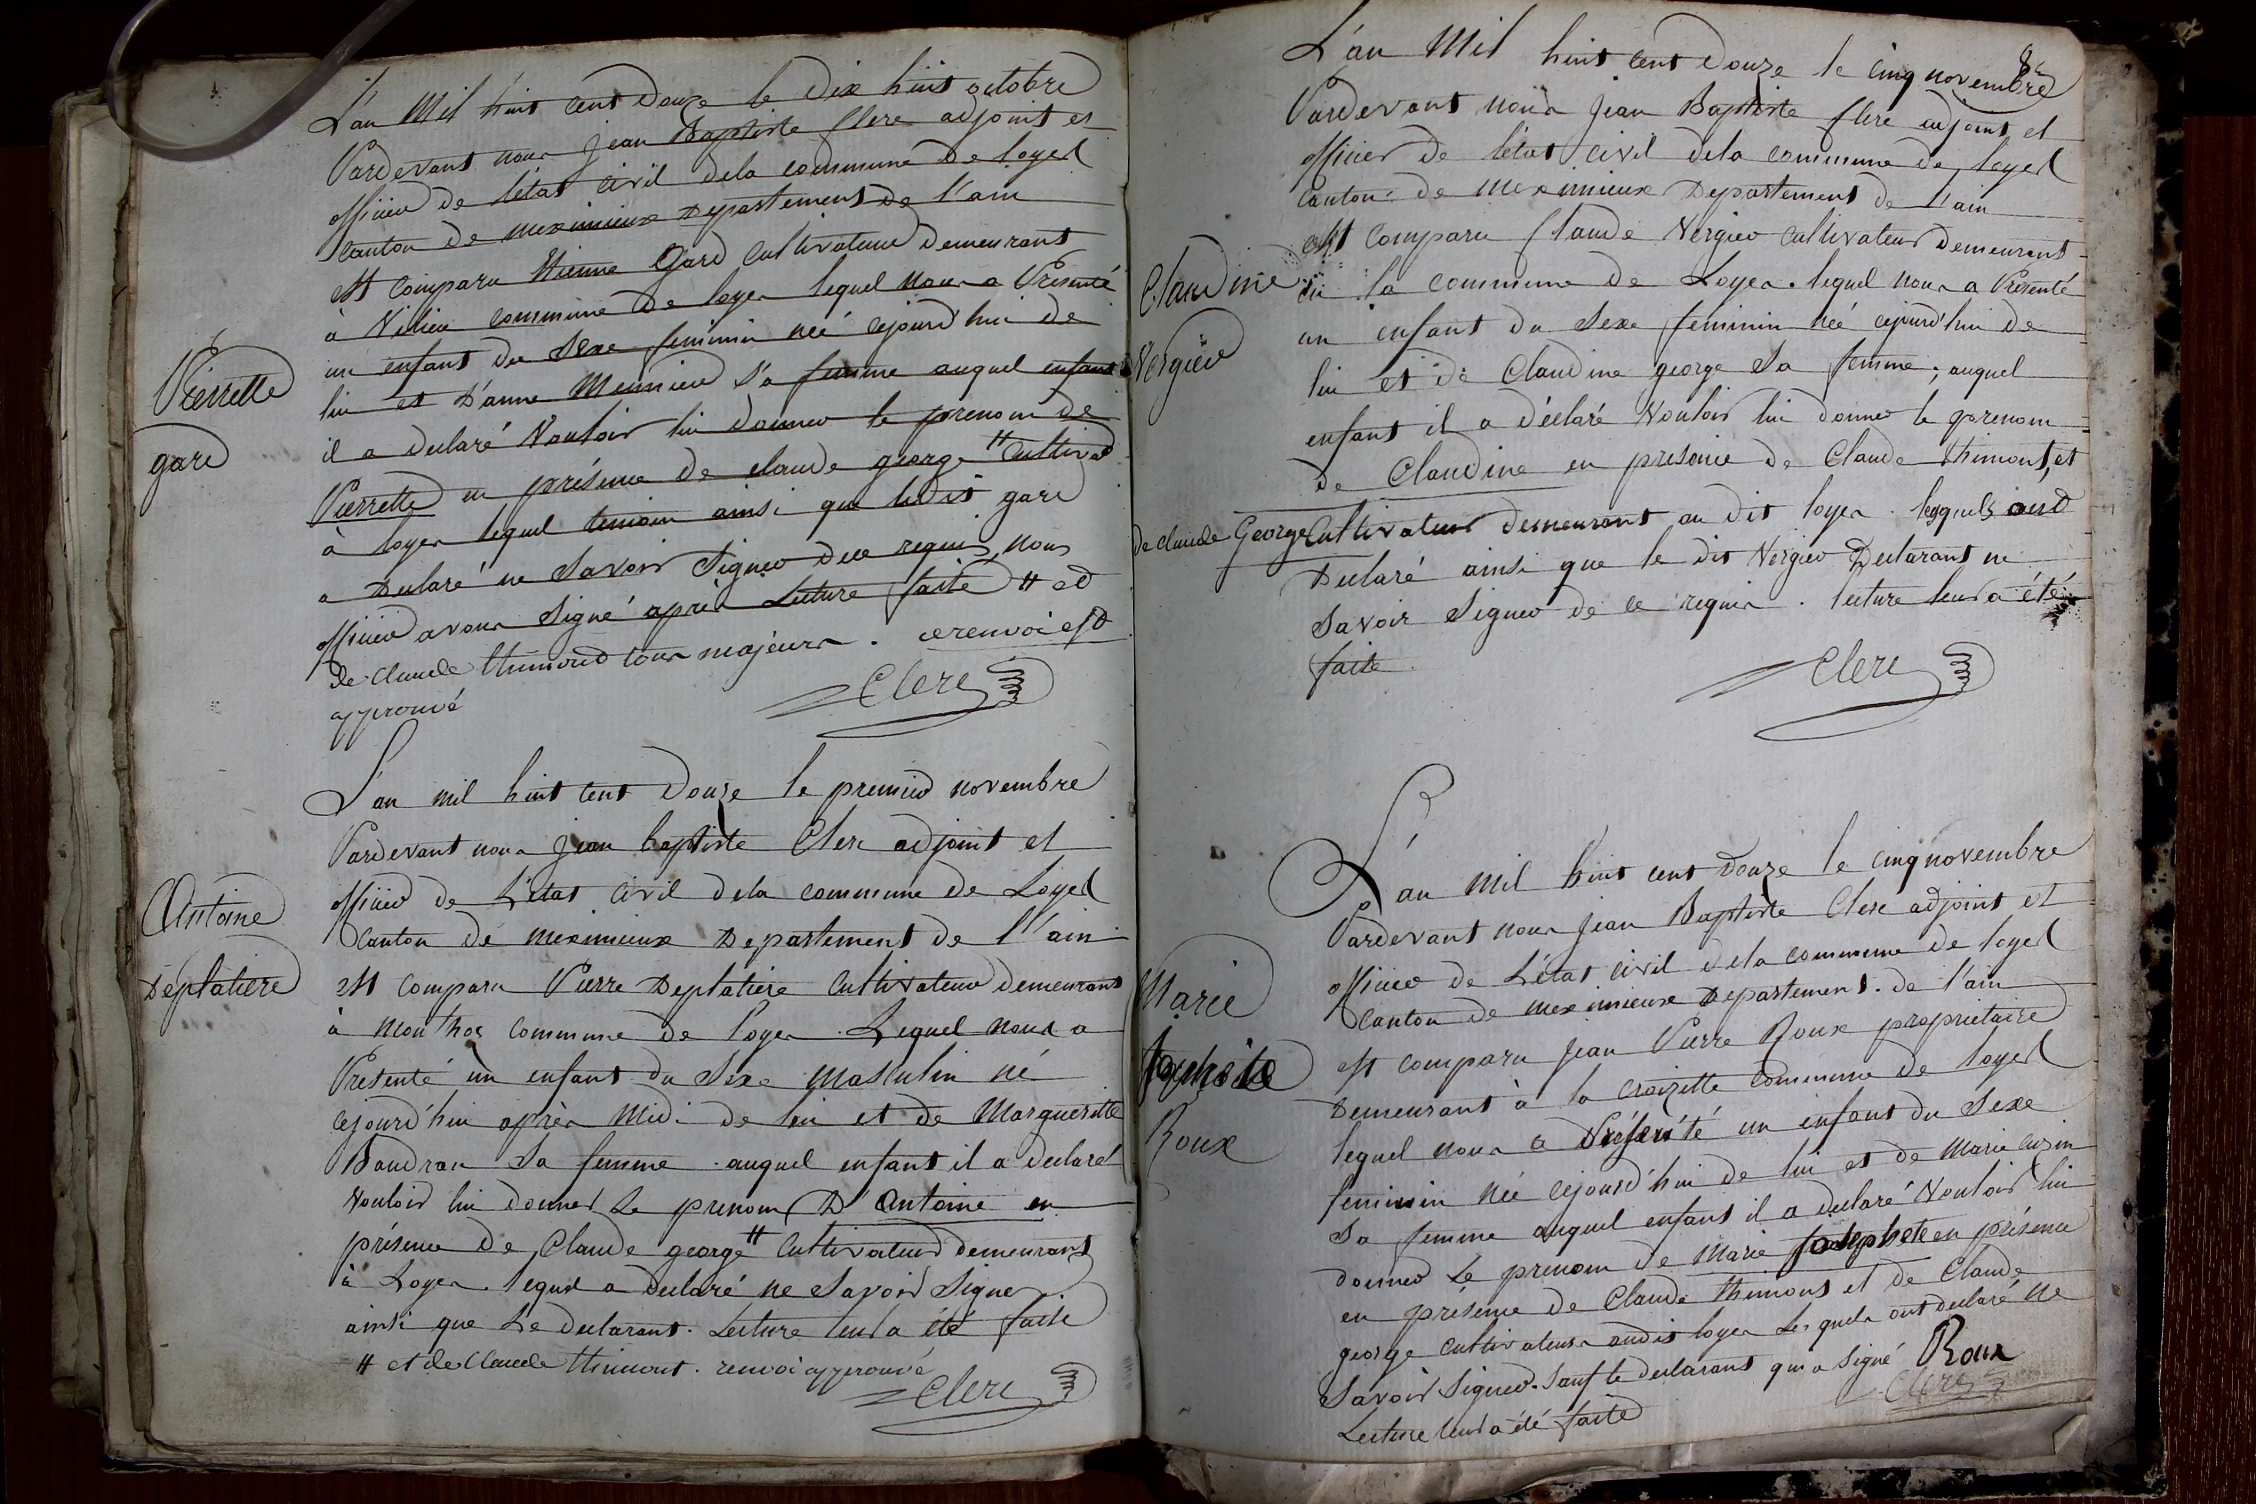 L'an mil huit cent douze le dix huit octobre
Pardevant nous jean Baptiste Clerc adjoint et
officier de l'état civil dela commune de loyes
canton de meximieux Departement de l'ain
est comparu Etienne Gard cultivateur demeurant
à Vilieu commune de loyes lequel nous a Présenté
un enfant du Sexe feminin née cejourd'hui de
lui et D'anne Meunier S'a femme auquel enfant
il a declaré Vouloir lui donner le prenom de
Pierrette en présence de claude george # cultivat
à loyes lequel temoin ainsi que ledit gard
a Declaré ne Savoir Signer dece requis, nous
officier avons Signé après Lecture faite # et
de claude thimond tous majeurs . cerenvoi est
approuvé
Clerc
Pierrette
gard
L'an mil huit cent Douze le premier novembre
Pardevant nous jean baptiste Clerc adjoint et
officier de L'état civil dela commune de Loyes
Canton de meximieux Departement de l'ain
est comparu Pierre Deplatiere cultivateur demeurant
à monthoz commune de Loyes . Lequel nous a
Présenté un enfant du Sexe masculin né
cejourd'hui après midi de lui et de Margueritte
Baudran Sa femme . auquel enfant il a declaré
Vouloir lui donner Le prenom D'Antoine en
présence de Claude george # cultivateur demeurant
à Loyes . lequel a declaré ne Savoir Signer
ainsi que Le declarant. Lecture leur a été faite
# et de Claude thimont . renvoi approuvé
Clerc
Antoine
Deplatiere
82
L'an mil huit cent Douze le cinq novembre
Pardevant nous jean Baptiste Clerc adjoint et
officier de l'état civil dela commune de loyes
canton de meximieux Departement de l'ain
est comparu Claude Vergier cultivateur demeurant
en la commune de Loyes . lequel nous a Présenté
un enfant du Sexe feminin née cejourd'hui de
lui et de Claudine george Sa femme ; auquel
enfant il a déclaré Vouloir lui donner le prenom
de Claudine en presence de Claude thimont, et
de claude George Cultivateur demeurant au dit loyes . lesquels ont
Declaré ainsi que le dit Vergier Declarant ne
Savoir Signer de ce requis . lecture leur a été
faite
Clerc
Claudine
Vergier
L'an mil huit cent Douze le cinq novembre
Pardevant nous jean Baptiste Clerc adjoint et
officier de L'état civil dela commune de loyes
Canton de meximieux Departement . de l'ain
est comparu jean Pierre Roux proprietaire
Demeurant à la croizette commune de loyes
lequel nous a Présenté un enfant du Sexe
feminin née cejourd'hui de lui et de Marie cuzin
Sa femme auquel enfant il a declaré Vouloir lui
donner Le prenom de Marie josephete en présence
en présence de Claude thimont et de Claude
george cultivateurs audit loyes Lesquels ont declaré ne
Savoir Signer . Sauf le declarant qui a Signé Roux
Lecture leur a été faite
Clerc
Marie
josephete
Roux